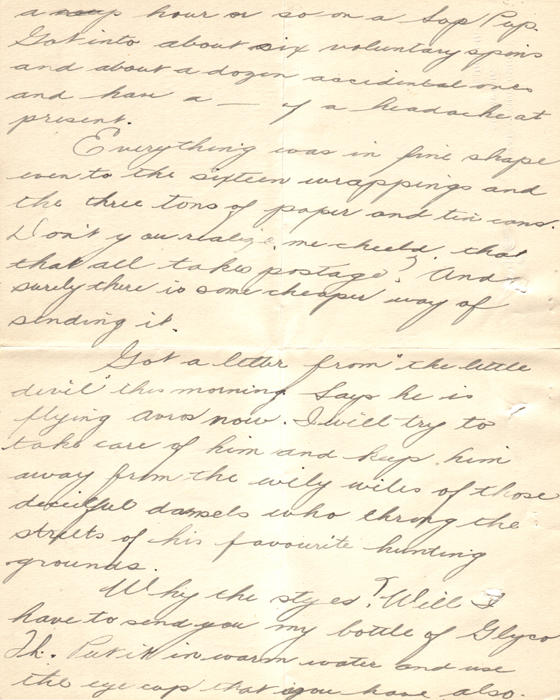 a hour or so on a Sop Pup.
Got into about six voluntary spins
and about a dozen accidental ones
and have a — of a headache at
present.
Everything was in fine shape
even to the sixteen wrappings and
the three tons of paper and tin cans.
Don't you realize, me cheeld, that
that all takes postage? And
surely there is some cheaper way of
sending it.
Got a letter from "the little
devil" this morning. Says he is
flying Avros now. I will try to
take care of him and keep him
away from the wily wiles of those
deceitful damsels who throng the
streets of his favourite hunting
grounds.
Why the styes? Will I
have to send you my bottle of Glyco
Th. Put it in warm water and use
the eye cup that you have also.